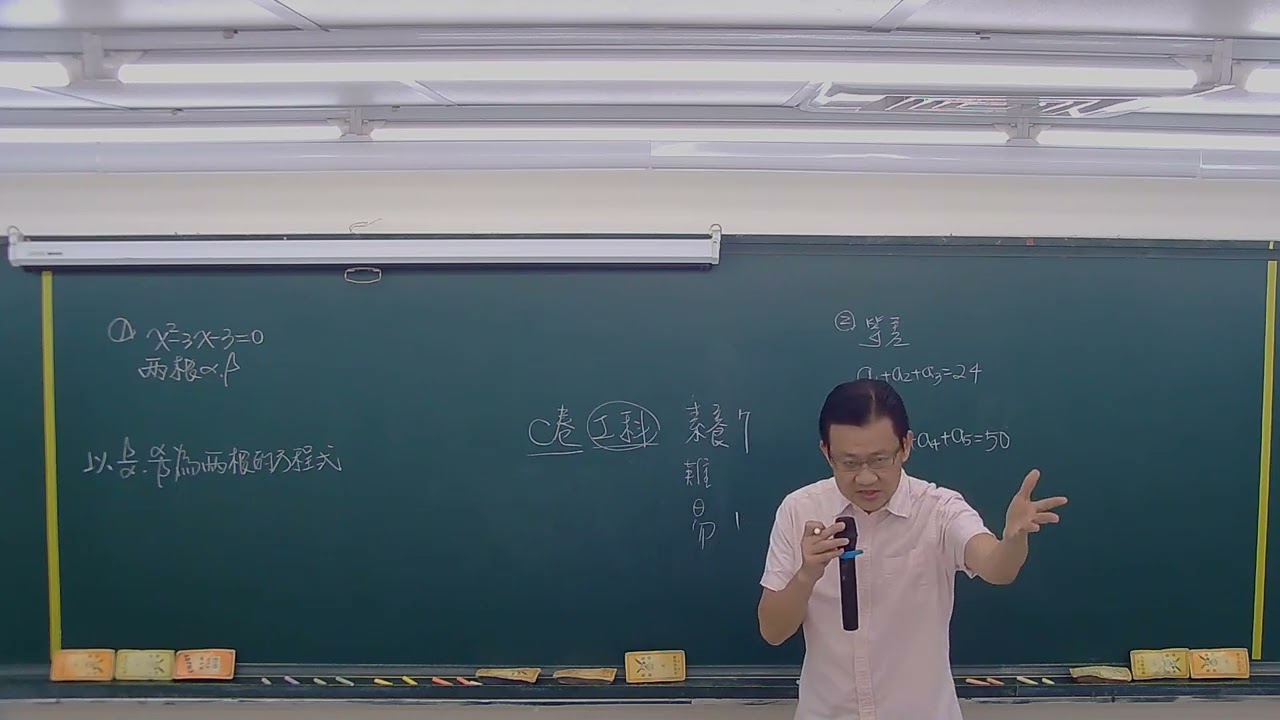 ① x²-3x-3=0
兩根α.β
以 β/α . α/β 為兩根的方程式
C卷 工科 素養7
難
易 1
② 等差
a₁+a₂+a₃=24
+a₄+a₅=50